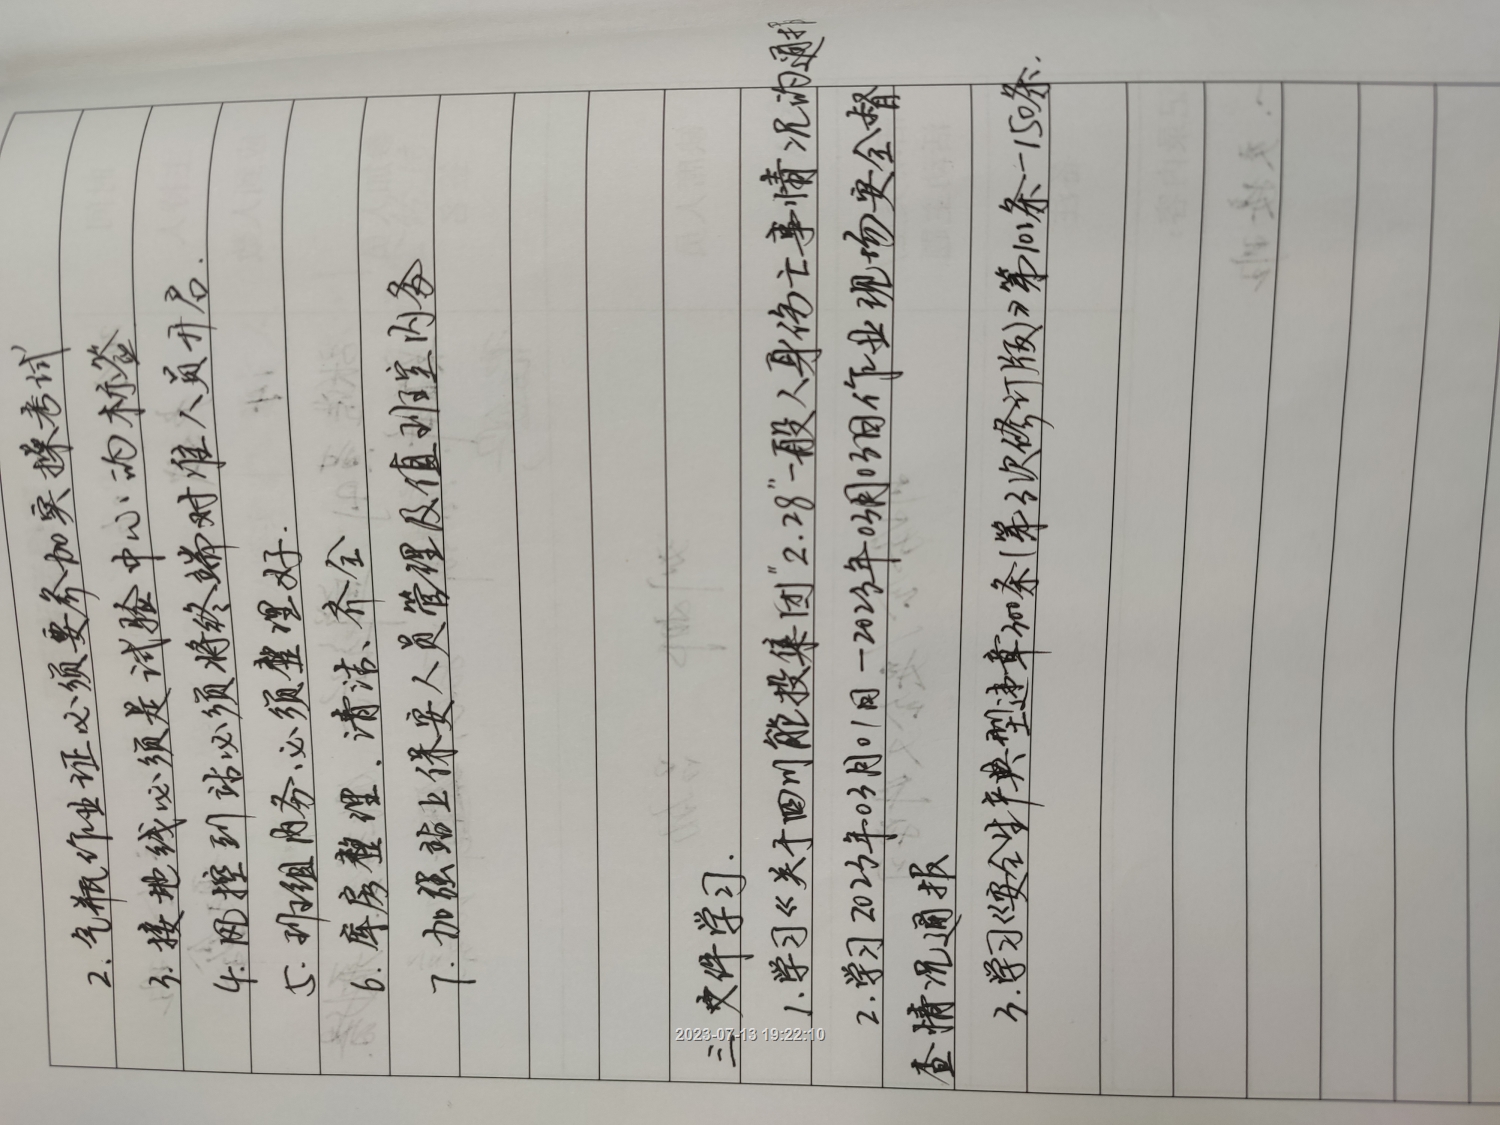 2. 气瓶作业证必须要参加实操考试
3. 接地线必须是试验中心的标签
4. 网控到站必须将终端对准人员开启.
5. 班组内务必须整理好.
6. 库房整理、清洁、齐全
7. 加强站上保安人员管理及值班室内务
三. 文件学习.
1. 学习《关于四川能投集团"2.28"一般人身伤亡事情况的通报
2. 学习2023年03月01日—2023年03月03日作业现场安全督
查情况通报
3. 学习《安全生产典型违章300条(第3次修订版)》第101条—150条.
2023-07-13 19:22:10